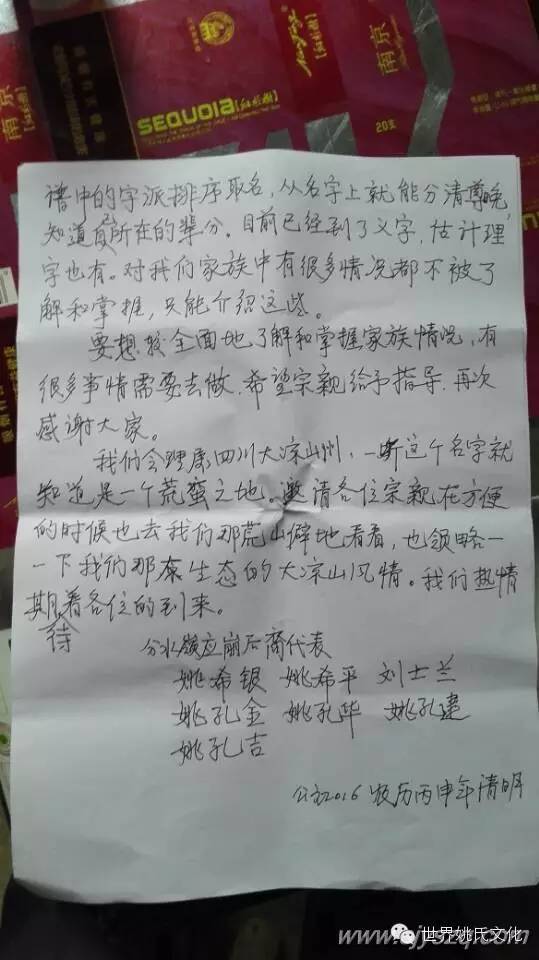 南京
SEQUOIA
20支
南京
谱中的字派排序取名，从名字上就能分清尊晚，
知道自己所在的辈分。目前已经到了义字，估计理
字也有。对我们家族中有很多情况都不被了
解和掌握，只能介绍这些。
要想较全面地了解和掌握家族情况，有
很多事情需要去做，希望宗亲给予指导，再次
感谢大家。
我们会理属四川大凉山州，一听这个名字就
知道是一个荒蛮之地。邀请各位宗亲在方便
的时候也去我们那荒山僻地看看，也领略一
一下我们那原生态的大凉山风情。我们热情
期待着各位的到来。
分水岭应崩后裔代表
姚希银 姚希平 刘士兰
姚孔金 姚孔华 姚孔建
姚孔吉
公元2016 农历丙申年清明
世界姚氏文化